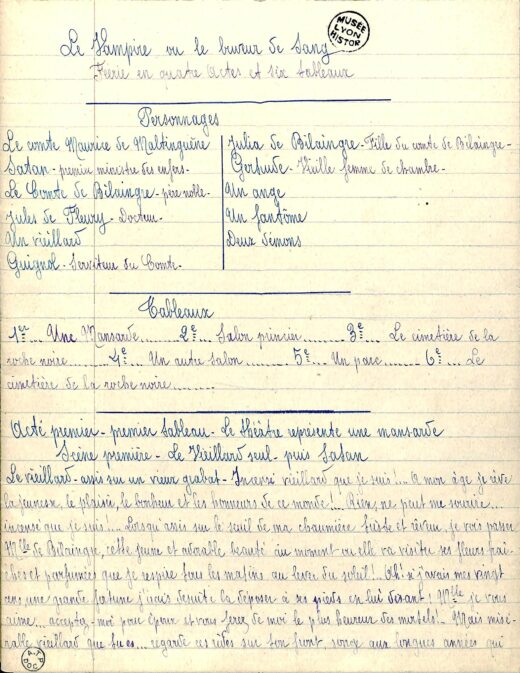 MUSÉE
LYON
HISTOR
Le Vampire ou le buveur de Sang
Féerie en quatre actes et six tableaux
Personnages
Le comte Maurice de Maltinguène
Satan - premier ministre des enfers.
Le Comte de Bilaingre - père noble.
Jules de Fleury - Docteur.
Un vieillard
Guignol - Serviteur du Comte.
Julia de Bilaingre - Fille du comte de Bilaingre -
Gertrude - Vieille femme de chambre -
Un ange
Un fantôme
Deux démons
Tableaux
1er... Une Mansarde........2e... Salon princier........3e... Le cimetière de la
roche noire........4e... Un autre salon........5e... Un parc.......6e... Le
cimetière de la roche noire.........
Acte premier - premier tableau - Le théâtre représente une mansarde
Scène première - Le Vieillard seul - puis Satan
Le vieillard - assis sur un vieux grabat - Insensé vieillard que je suis!... A mon âge je rêve
la jeunesse, le plaisir, le bonheur et les honneurs de ce monde!.. Rien, ne peut me sourire...
insensé que je suis!... Lorsqu'assis sur le seuil de ma chaumière triste et rêveur, je vois passer
Mlle de Bilaingre, cette jeune et adorable beauté au moment ou elle va visiter ses fleurs fraî-
ches et parfumées que je respire tous les matins au lever du soleil!.. Oh! si j'avais mes vingt
ans, une grande fortune j'irais de suite la déposer à ses pieds en lui disant: Mlle je vous
aime... acceptez-moi pour époux et vous ferez de moi le plus heureux des mortels!.. Mais misé-
rable vieillard que tu es... regarde ces rides sur ton front, songe aux longues années qui
A.T.P
DOC